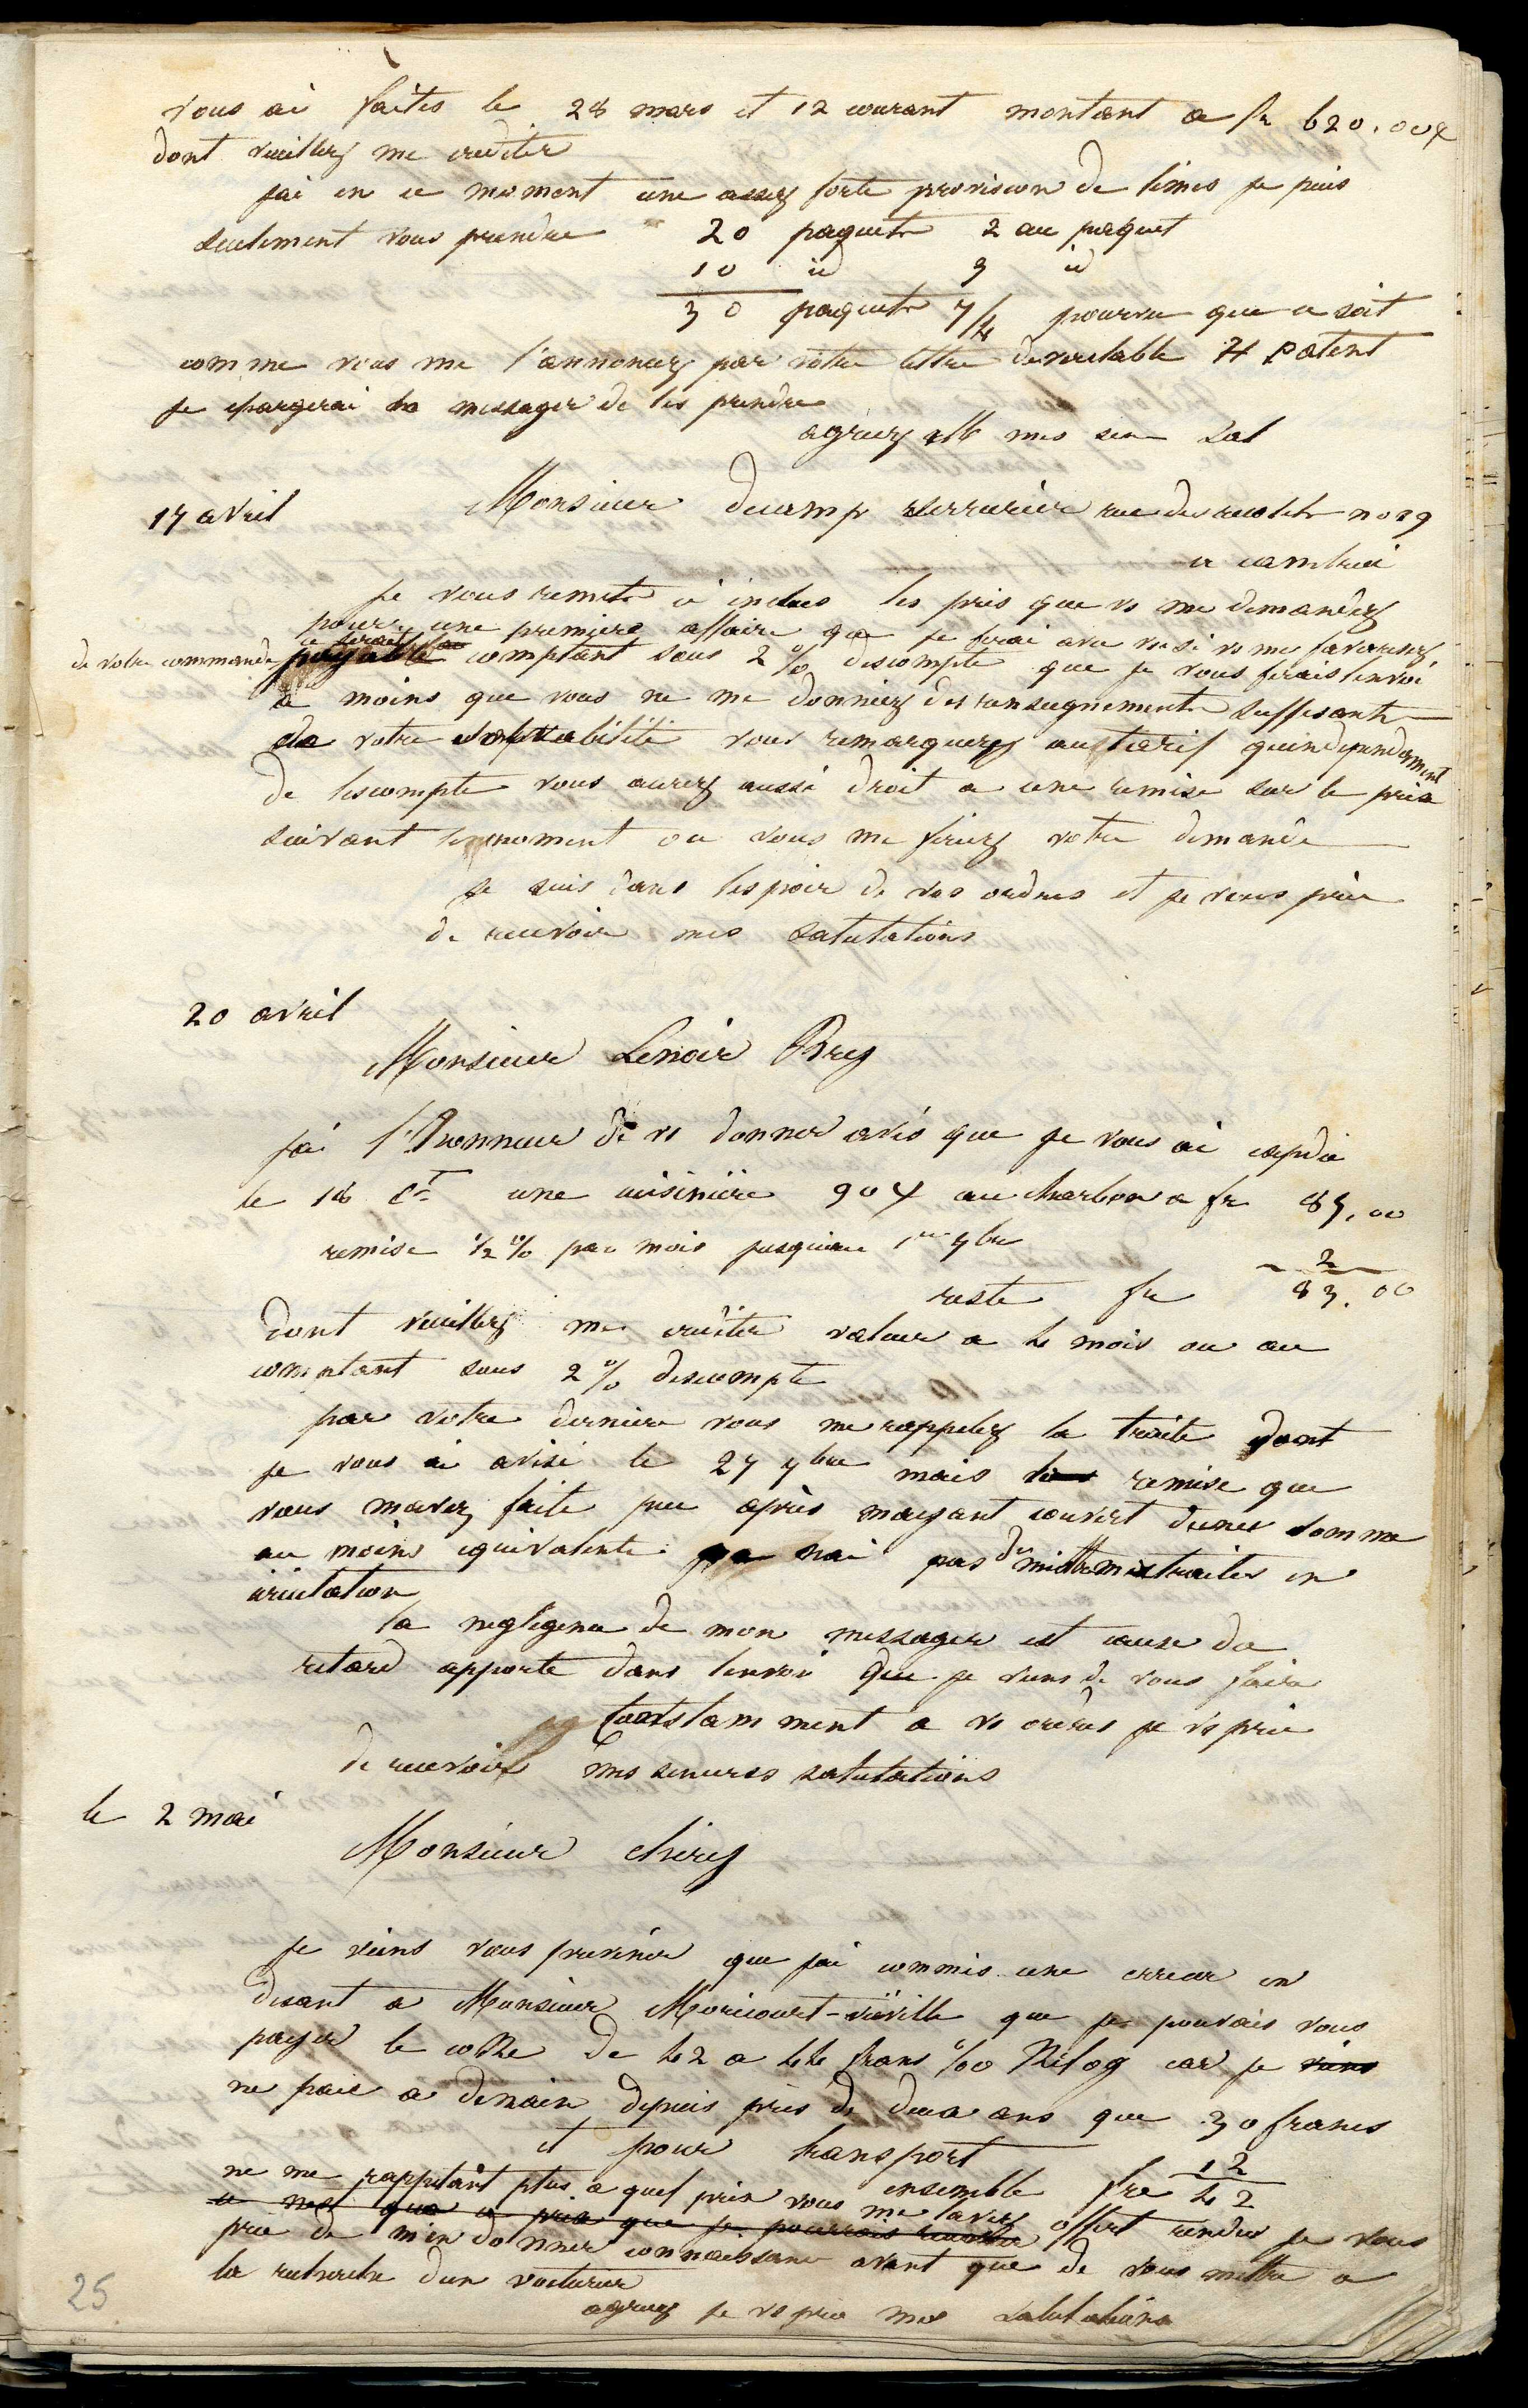 vous ai faites le 28 mars et 12 courant montant a fr 620.00
dont veuillez me crediter
jai en ce moment une assez forte provision de limes je puis
seulement vous prendre 20 paquets 2 au paquet
10 id 3 id
30 paquets pourvu que ce soit
comme vous me l'annoncez par votre lettre veritable H Patent
je chargerai le messager de les prendre
agreez mes sinc Sal
17 avril Monsieur decamp serrurier rue des no 29
a cambrai
je vous remets ci inclus les pris que vs me demandez
pour une premiere affaire que je ferai avec vs si vs me favorisez
de votre commande ce serait au comptant sous 2 % descompte que je vous ferais lenvoi
a moins que vous ne me donniez des renseignements suffisants
de votre solvabilité vous remarquerez au tarif quindependamment
de lescompte vous aurez aussi droit a une remise sur le prix
suivant le moment ou vous me feriez votre demande
je suis dans lespoir de vos ordres et je vous prie
de recevoir mes salutations
20 avril
Monsieur Lenoir Brez
jai l'honneur de vs donner avis que je vous ai expedie
le 18 ct une cuisinière au charbon a fr 85.00
remise ½ % par mois jusquau 1er 7bre 2
reste fr 83.00
dont veuillez me crediter valeur a 4 mois ou au
comptant sous 2 % descompte
par votre derniere vous me rappelez la traite dont
je vous ai avisé le 27 7bre mais la remise que
vous mavez faite peu après mayant couvert dune somme
au moins equivalente je nai pas de mettre mes traites en
circulation
la negligence de mon messager est cause du
retard apporte dans lenvoi que je viens de vous faire
Constamment a vs ordres je vs prie
de recevoir mes sinceres salutations
le 2 mai
Monsieur chirez
je viens vous prevenir que jai commis une erreur en
disant a Monsieur Moricourt-viéville que je pouvais vous
payer le coke de 42 a 44 frans %0 Kilog car je viens
ne paie a denain depuis près de deux ans que 30 francs
et pour transport 12
ensemble frs 42
ne me rappelant plus a quel prix vous me lavez offert rendu je vous
ce nest que a prix que je pourrais
prie de m'en donner connaissance avant que de vous mettre a
la recherche dun voiturier
agreez je vs prie mes salutations
25